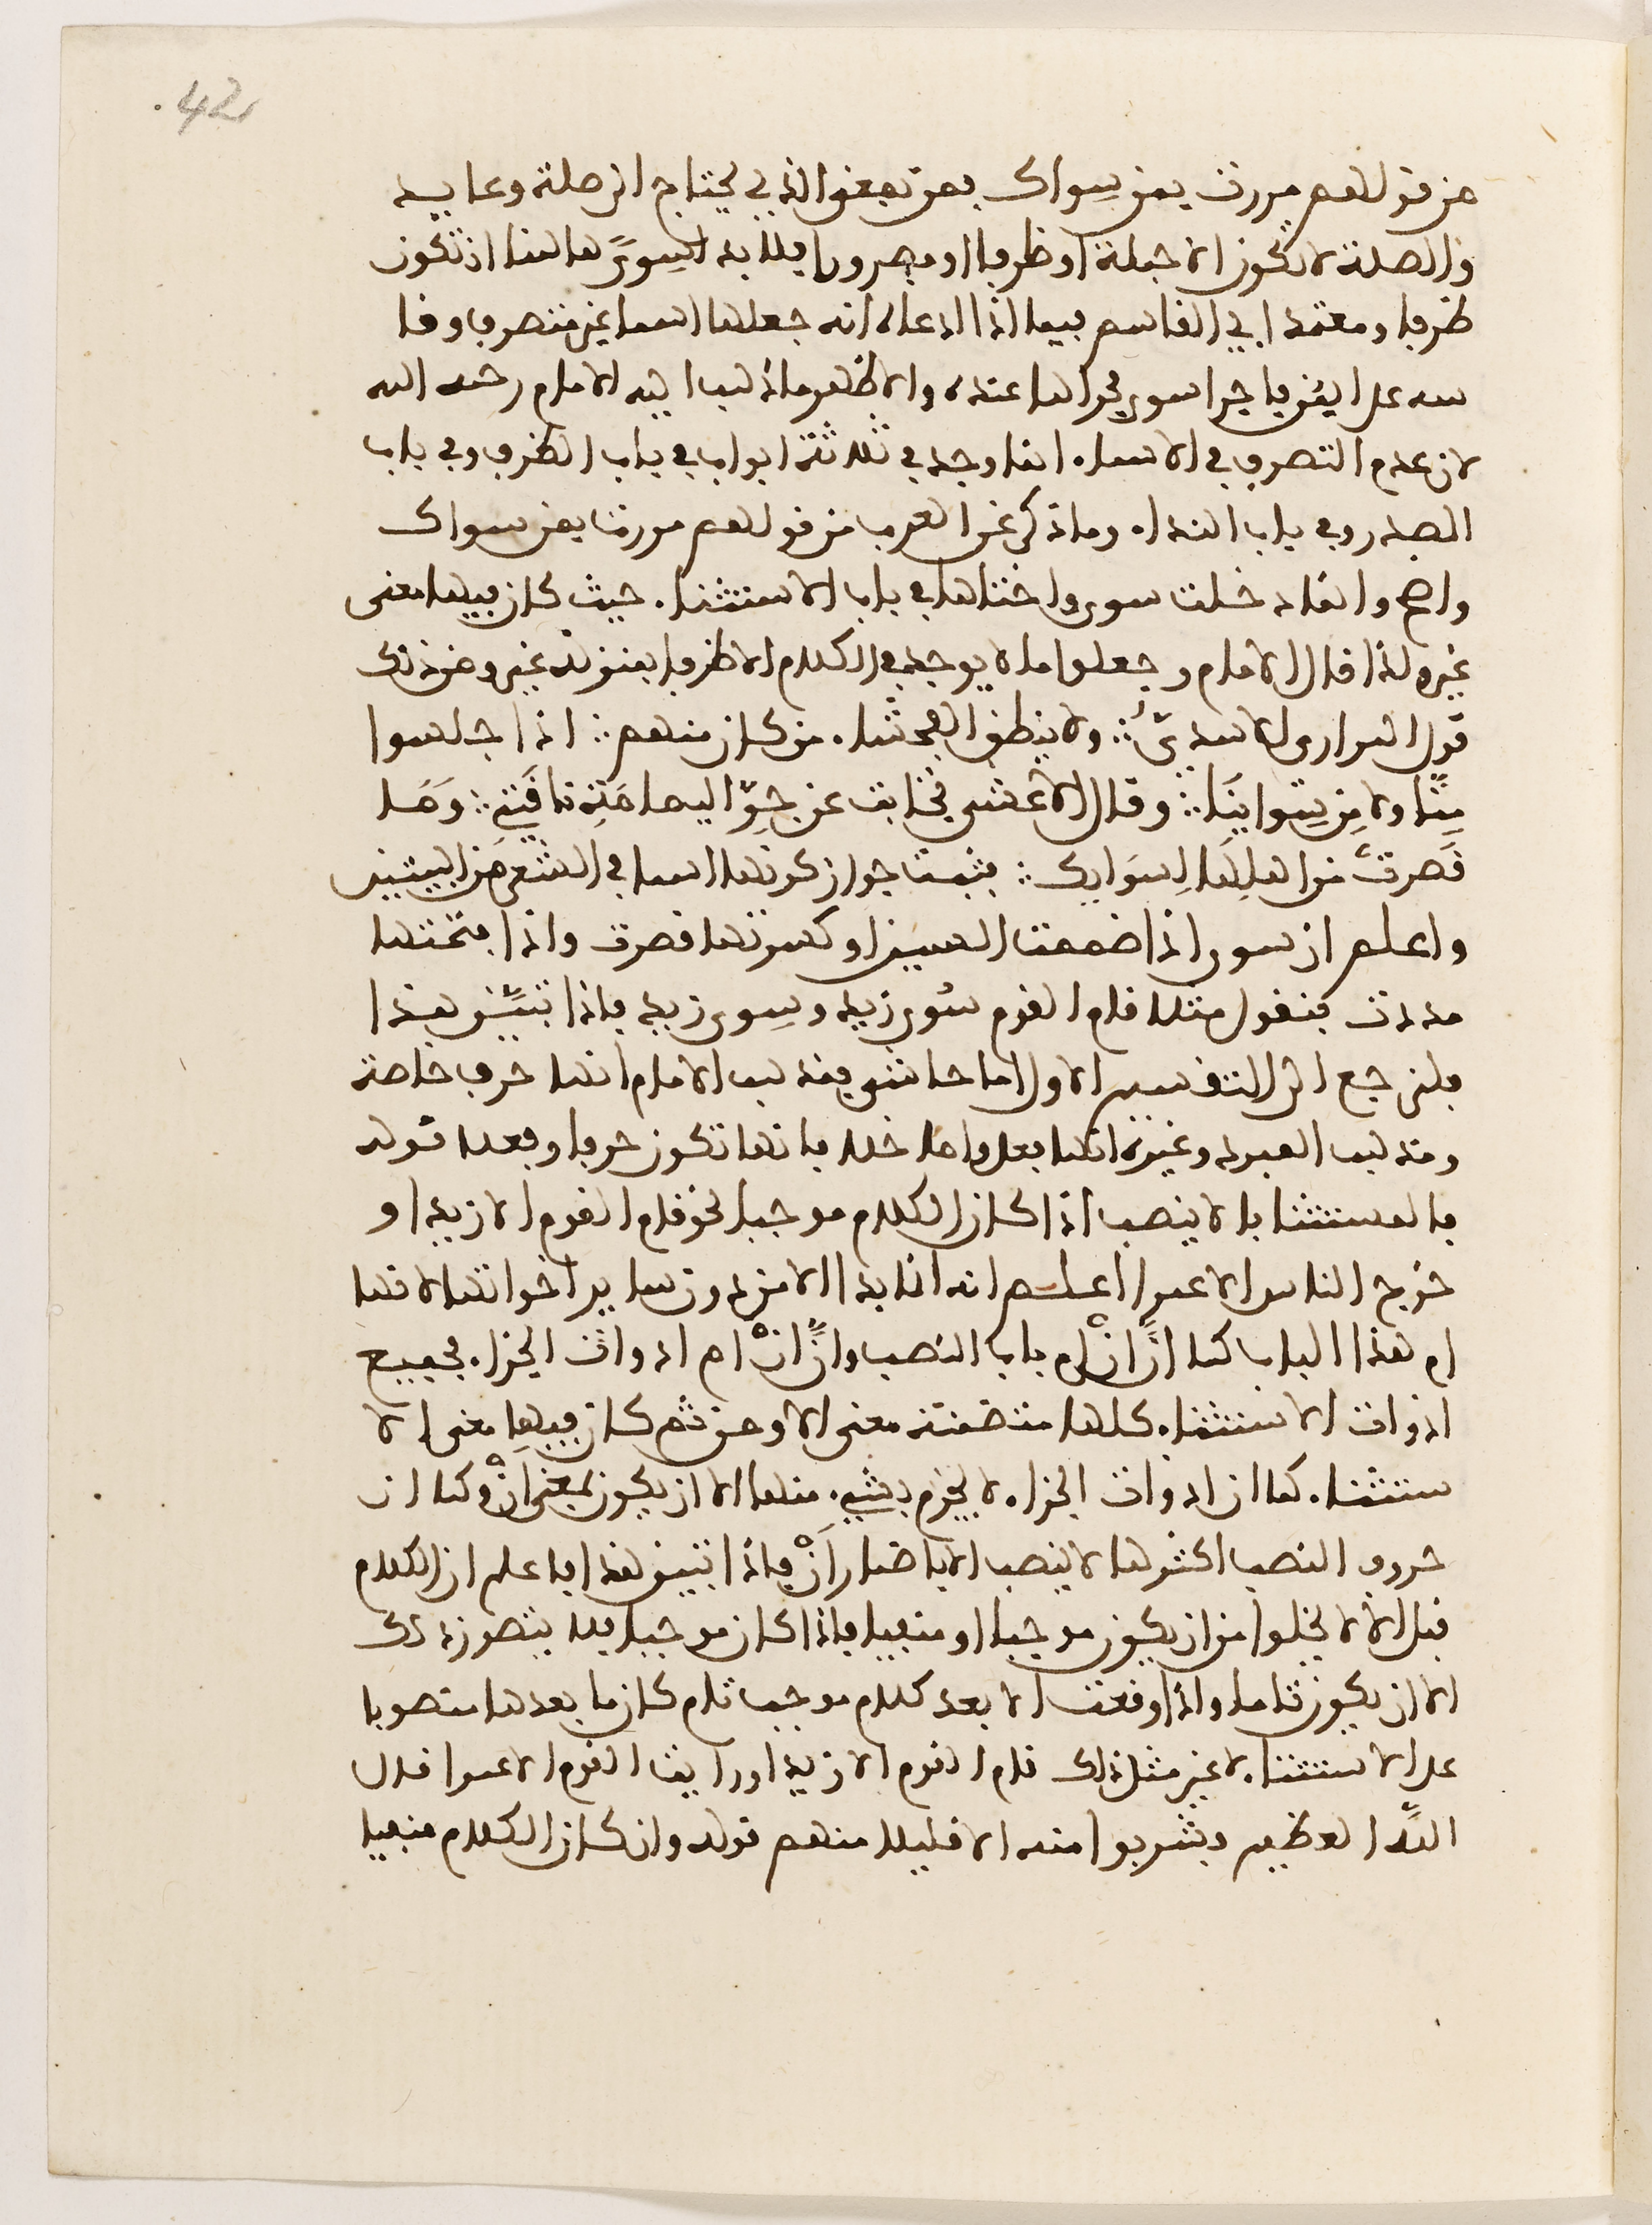 42.
من قولهم مررت بمن سواك بمن بمعنى الذي يحتاج الى صلة وعايد
والصلة لا تكون الا جملة او ظرفا او مجرورا فلا بد لسوى هاهنا ان تكون
ظرفا ومعتمد ابي القاسم فيما اذا ادعاه انه جعلها اسما غير متصرف وقا
سه على اين فاجرا سوى مجراها عنده والاظهر ما ذهب اليه الامام رحمه الله
لان عدم التصرف في الاسماء انما وجد في ثلاثة ابواب في باب الظرف وفي باب
المصدر وفي باب النداء وما ذكر عن العرب من قولهم مررت بمن سواك
واضح وانما دخلت سوى واختاها في باب الاستثناء حيث كان فيها معنى
غير ولذا قال الامام وجعلوا ما لا يوجد في الكلام الا ظرفا بمنزلة غير ومن ذلك
قول المرار الاسدي ∴ ولا ينطق الفحشاء من كان منهم ∴ اذا جلسوا
مِنّا ولا مِن سِوائِنَا ∴ وقال الاعشى تجانف عن جوّ اليمامةِ ناقَتي ∴ وَمَا
قَصرتْ من اهلِهَا لِسَوائِك ∴ فثبت جواز كونها اسما في الشعر من البيتين
واعلم ان سوى اذا ضممت السين او كسرتها قصرت واذا فتحتها
مددت فتقول مثلا قام القوم سُوى زيد وسِوى زيد فاذا تبيّن هذا
فلنرجع الى التفسير الاول اما حاشى فمذهب الامام انها حرف خاصة
ومذهب المبرد وغيره انها فعل واما خلا فانها تكون حرفا وفعلا قوله
فالمستثنا بالا ينصب اذا كان الكلام موجبا نحو قام القوم الا زيدا و
خرج الناس الا عمرا اعلم انه انما بدا الا من دون ساير اخواتها لانها
ام هذا الباب كما أنَّ أنْ ام باب النصب وأنَّ إنْ ام ادوات الجزاء فجميع
ادوات الاستثناء كلها متضمنة معنى الا ومن ثم كان فيها معنى الا
ستثناء كما ان ادوات الجزاء لا يجزم بشيء منها الا ان يكون بمعنى إنْ وكما ان
حروف النصب اكثرها لا ينصب الا باضمار أَنْ فاذا تبين هذا فاعلم ان الكلام
قبل الا لا يخلوا من ان يكون موجبا او منفيا فاذا كان موجبا فلا يتصور ذلك
الا ان يكون تاما واذا وقعت الا بعد كلام موجب تام كان ما بعدها منصوبا
على الاستثناء لا غير مثل ذلك قام القوم الا زيدا ورايت القوم الا عمرا قال
اللّه العظيم فشربوا منه الا قليلا منهم قوله وان كان الكلام منفيا